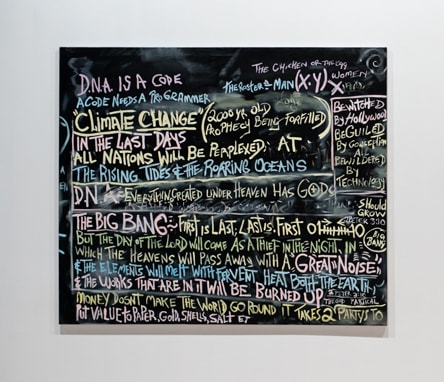 THE CHICKEN OR THE EGG
D.N.A. IS A CODE
THE ROSTER = MAN (X.Y) WOMEN
A CODE NEEDS A PROGRAMMER
"CLIMATE CHANGE" 2000 YR. OLD
PROPHECY BEING FORFILLED
IN THE LAST DAYS
ALL NATIONS WILL BE PERPLEXED AT
THE RISING TIDES & THE ROARING OCEANS
BEWITCHED
BY HOLLYWOOD
BEGUILED
BY
ALL
BEWILDERED
BY
TECHNOLOGY
D.N.A EVERYTHING CREATED UNDER HEAVEN HAS GOD
SHOULD
GROW
PETER 3:10
THE BIG BANG ~ FIRST IS LAST, LAST IS FIRST
BIG
BANG
BUT THE DAY OF THE LORD WILL COME AS A THIEF IN THE NIGHT, IN
WHICH THE HEAVENS WILL PASS AWAY WITH A "GREAT NOISE"
& THE ELEMENTS WILL MELT WITH FERVENT HEAT BOTH THE EARTH
& THE WORKS THAT ARE IN IT WILL BE BURNED UP
MONEY DOSNT MAKE THE WORLD GO ROUND IT TAKES 2 PARTYS TO
PUT VALUE TO PAPER, GOLD, SHELLS, SALT ET